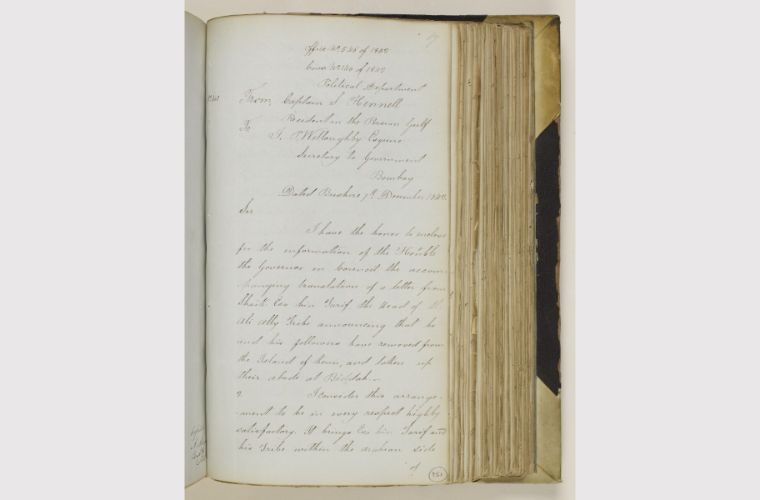 of 1840
of 1840
Political Department
From, Captain S. Hennell
Resident in the Persian Gulf
To
J. P. Willoughby Esquire
Secretary to Government
Bombay
Dated Bushire 7th December 1840
Sir
I have the honor to enclose
for the information of the Honble
the Governor in Council the accom
panying translation of a letter from
Shaik Esa bin Tarif the Head of
Ali Tribe announcing that he
and his followers have removed from
the Island of and taken up
their abode at Biddah.
2. I consider this arrange
-ment to be in every respect highly
satisfactory. It brings Esa bin Tarif and
his Tribe within the Arabian side
of